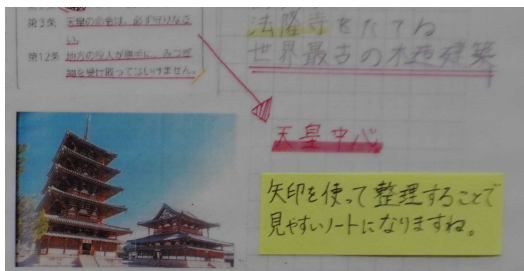 第3条 天皇の命令は、必ず守りなさ
い。
第12条 地方の役人が勝手に、みつぎ
物を受け取ってはいけません。
法隆寺をたてる
世界最古の木造建築
天皇中心
矢印を使って整理することで
見やすいノートになりますね。